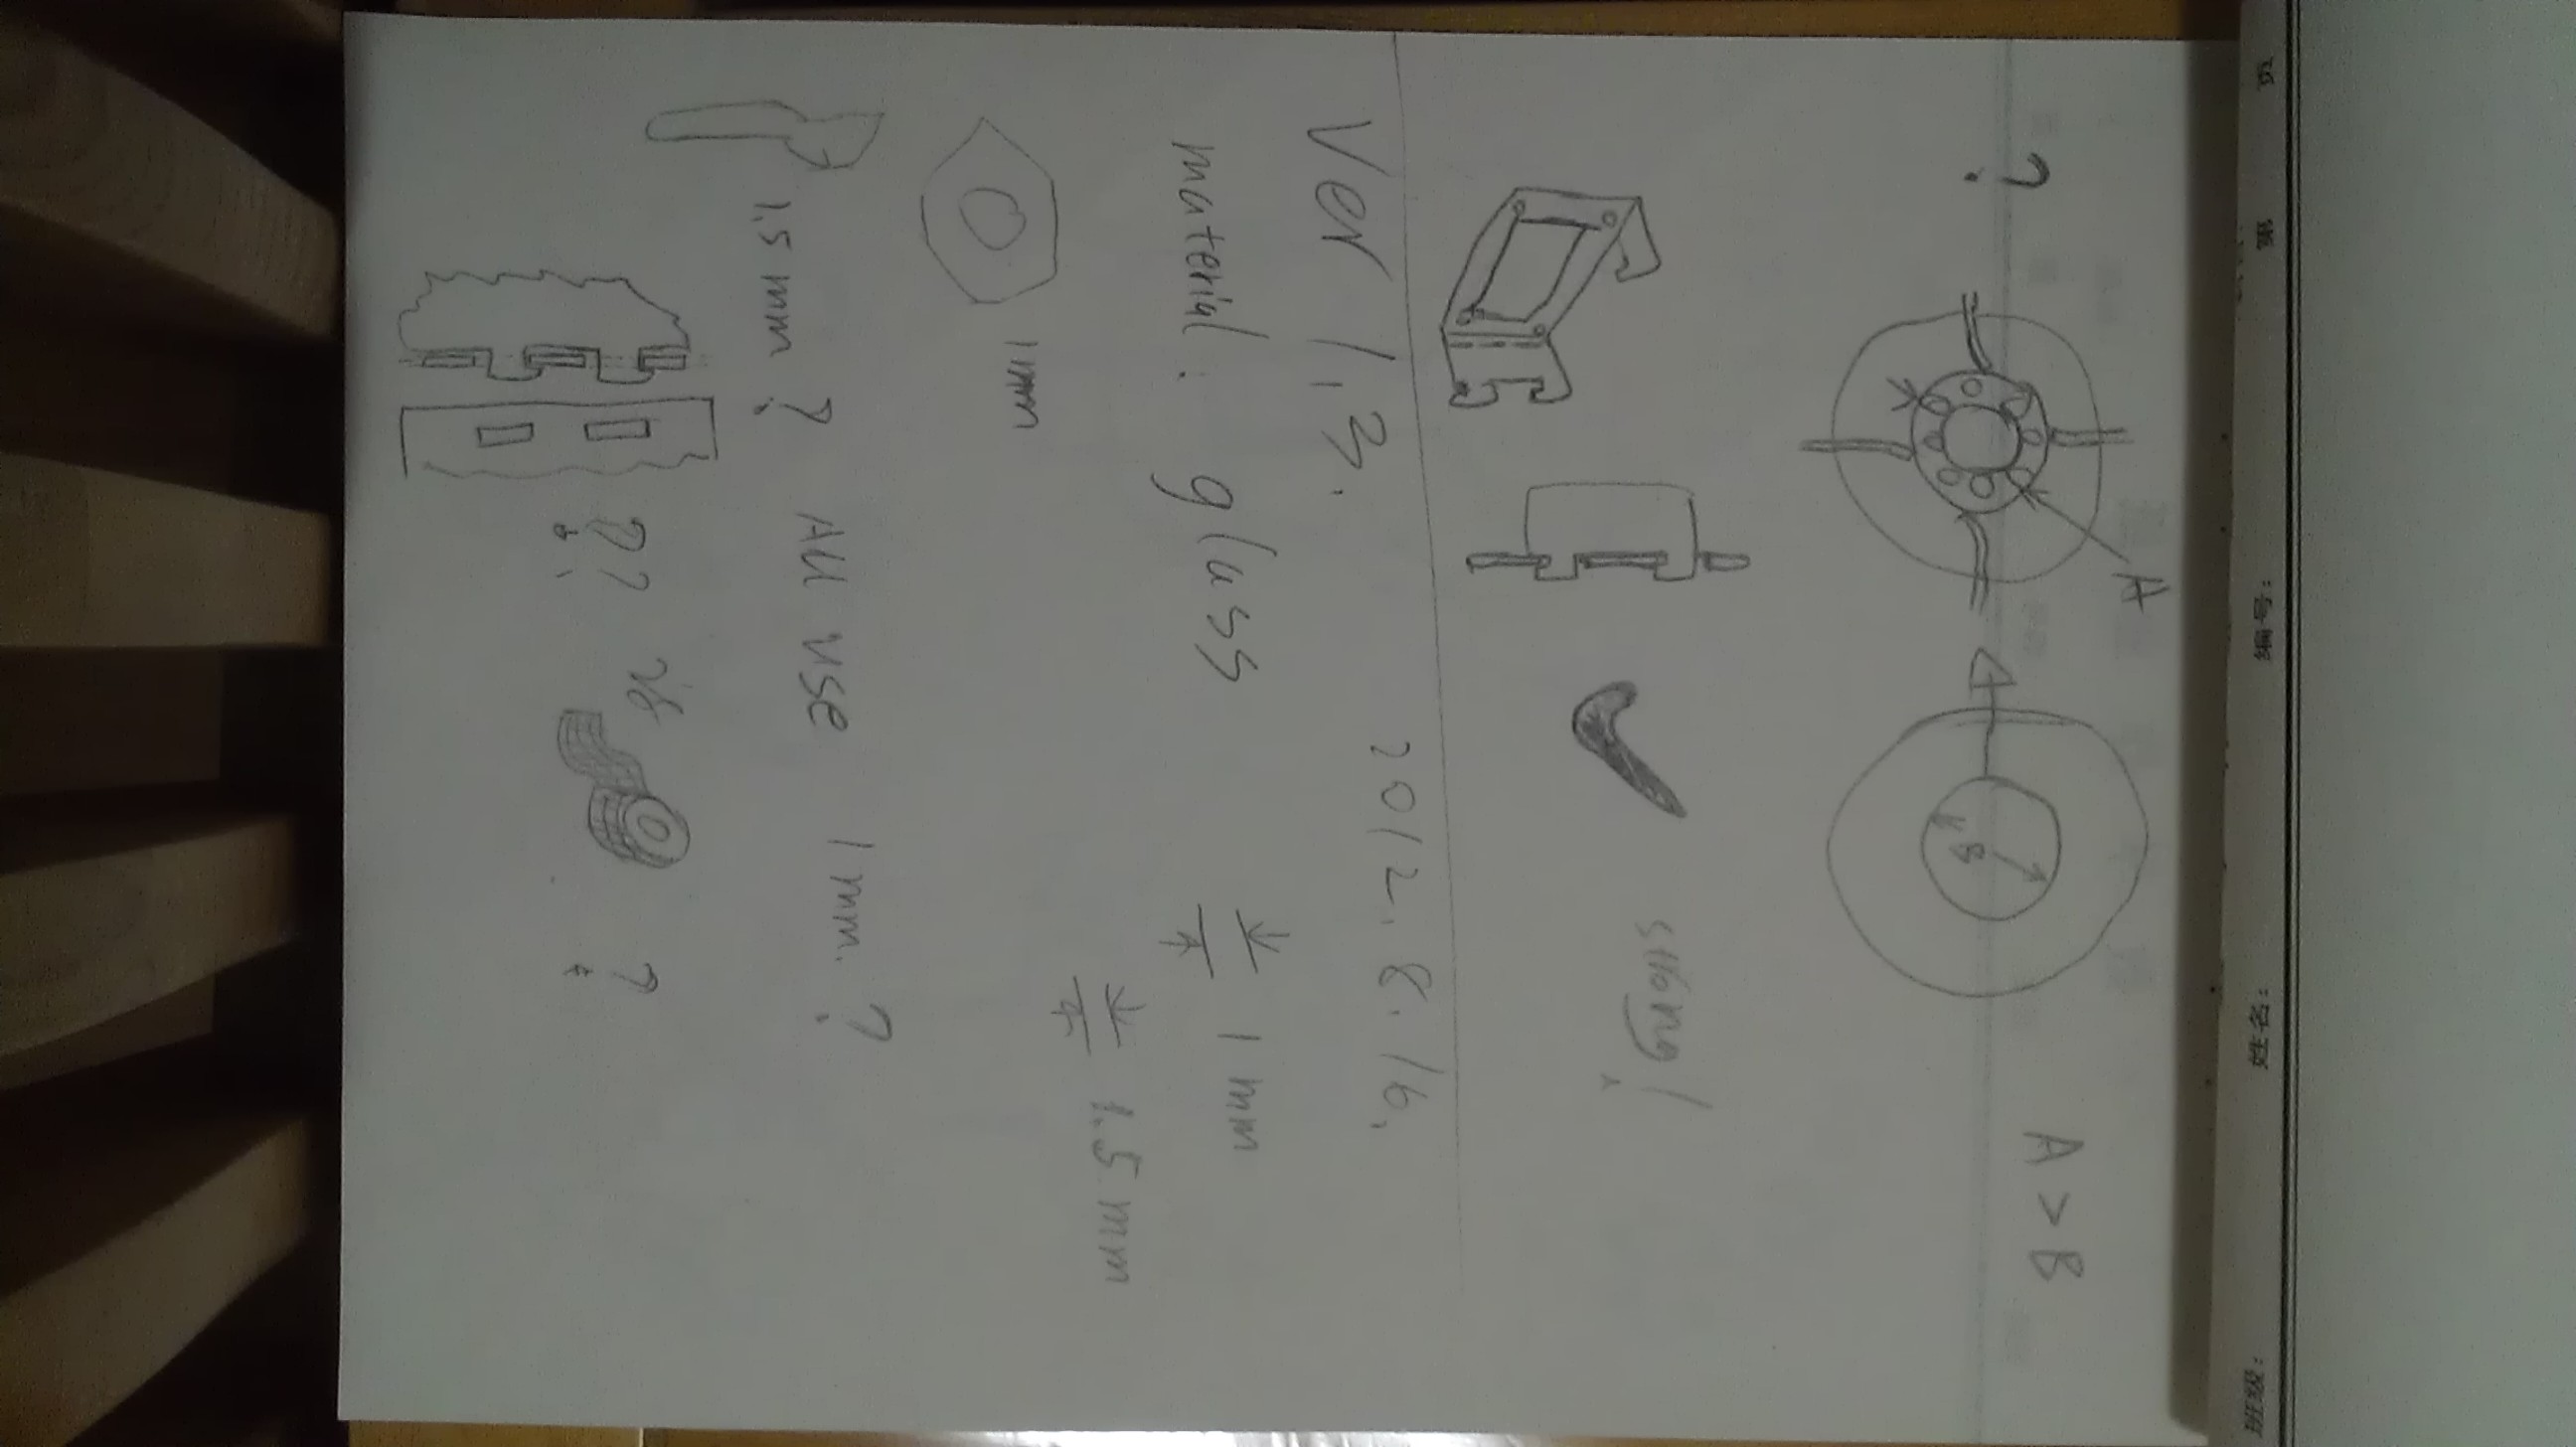 班级: 姓名: 编号: 第 页
?
A
B
A > B
strong!
Ver 1.3. 2012.8.16.
material: glass 1 mm
1.5 mm
1mm
1.5 mm? All use 1mm.?
?? vs ?